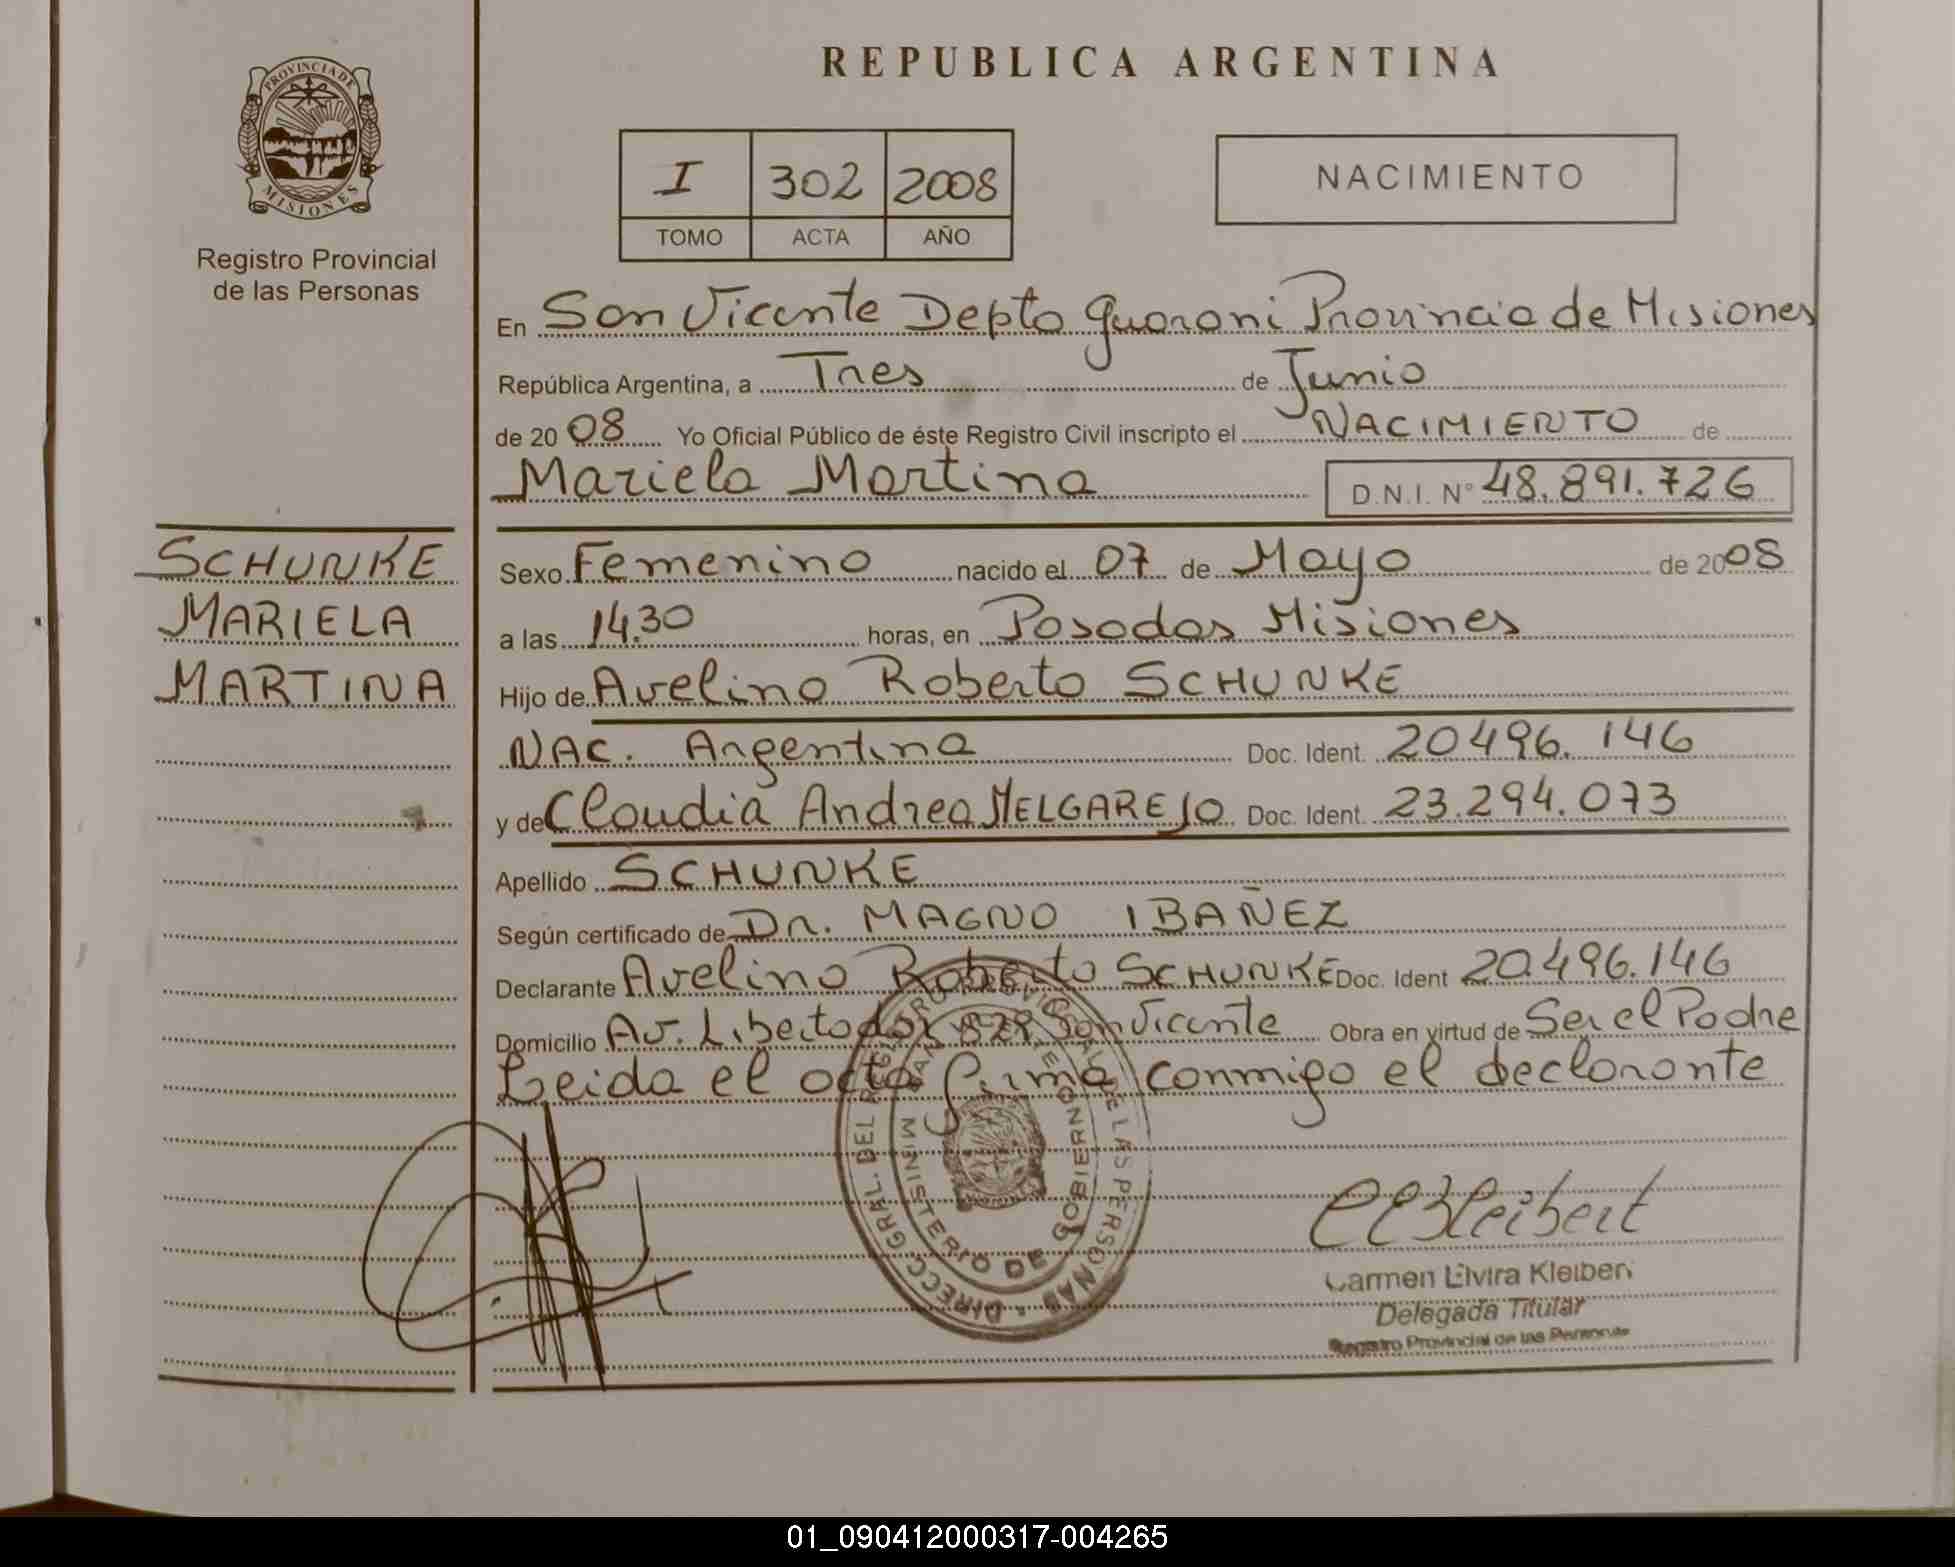 PROVINCIA DE
MISIONES
Registro Provincial
de las Personas
REPUBLICA ARGENTINA
I 302 2008
TOMO ACTA AÑO
NACIMIENTO
En San Vicente Depto Guarani Provincia de Misiones
República Argentina, a Tres de Junio
de 2008 Yo Oficial Público de éste Registro Civil inscripto el NACIMIENTO de
Mariela Martina D.N.I. N° 48.891.726
SCHUNKE
MARIELA
MARTINA
Sexo Femenino nacido el 07 de Mayo de 2008
a las 14.30 horas, en Posadas Misiones
Hijo de Avelino Roberto SCHUNKE
NAC. Argentina Doc. Ident. 20496.146
y de Claudia Andrea MELGAREJO Doc. Ident. 23.294.073
Apellido SCHUNKE
Según certificado de Dr. MAGNO IBAÑEZ
Declarante Avelino Roberto SCHUNKE Doc. Ident 20.496.146
Domicilio Av. Libertador 829 San Vicente Obra en virtud de Ser el Padre
Leida el acta firma conmigo el declarante
DIRECC. GRAL. DEL REGISTRO PROVINCIAL DE LAS PERSONAS
MINISTERIO DE GOBIERNO
Carmen Elvira Kleibert
Delegada Titular
Registro Provincial de las Personas
01_090412000317-004265